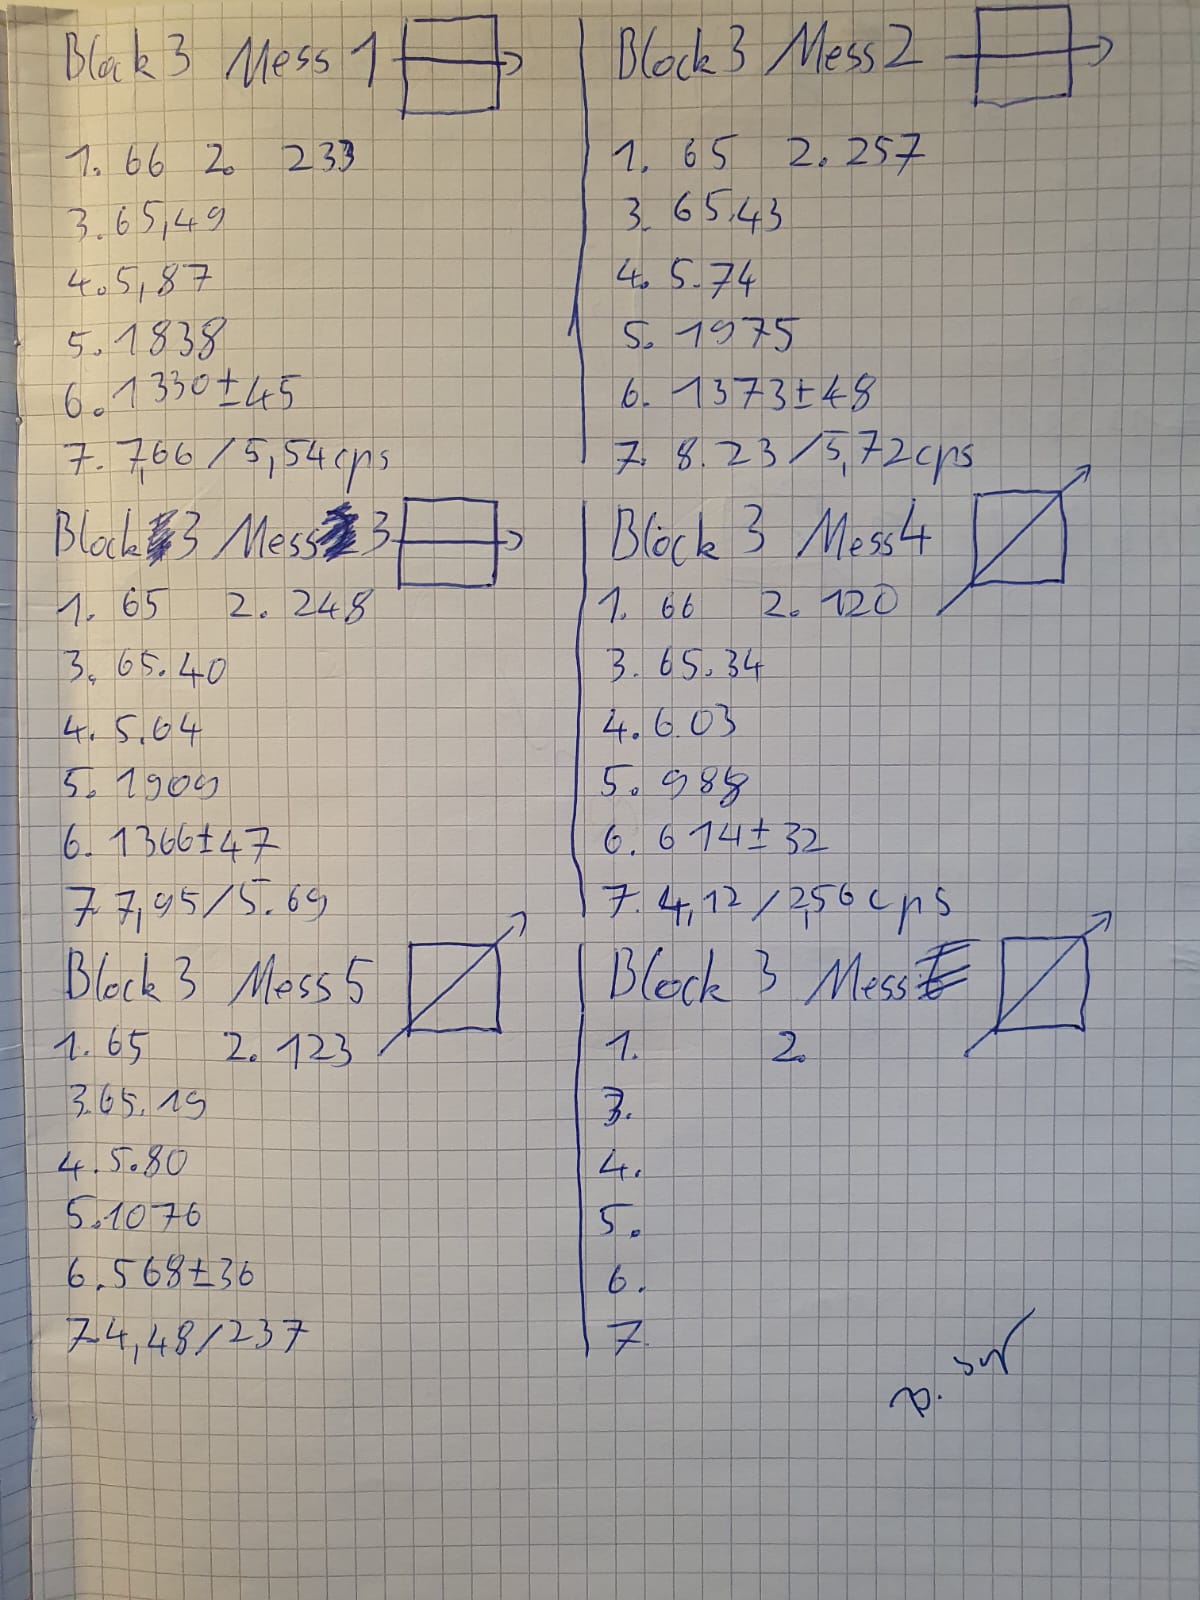 Block 3 Mess 1
1. 66 2. 233
3. 65,49
4. 5,87
5. 1838
6. 1330±45
7. 7,66 / 5,54cps
Block 3 Mess 2
1. 65 2. 257
3. 65.43
4. 5.74
5. 1975
6. 1373±48
7. 8.23 / 5,72cps
Block 3 Mess 3
1. 65 2. 248
3. 65.40
4. 5.64
5. 1909
6. 1366±47
7 7,95 / 5.69
Block 3 Mess 4
1. 66 2. 120
3. 65.34
4. 6.03
5. 988
6. 614±32
7. 4,12 / 2,56 cps
Block 3 Mess 5
1. 65 2. 123
3. 65.19
4. 5.80
5. 1076
6. 568±36
7 4,48 / 237
Block 3 Mess
1. 2.
3.
4.
5.
6.
7.